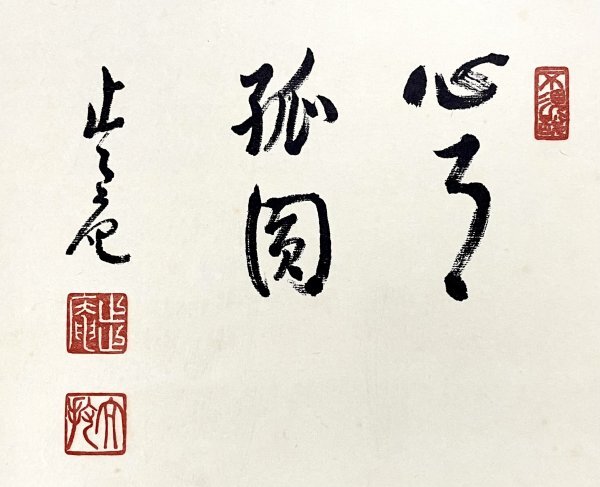 心月
孤圓
止々庵